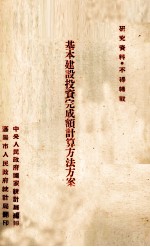 研究資料·不得轉載
基本建設投資完成額計算方法方案
中央人民政府國家統計局編印
瀋陽市人民政府統計局翻印